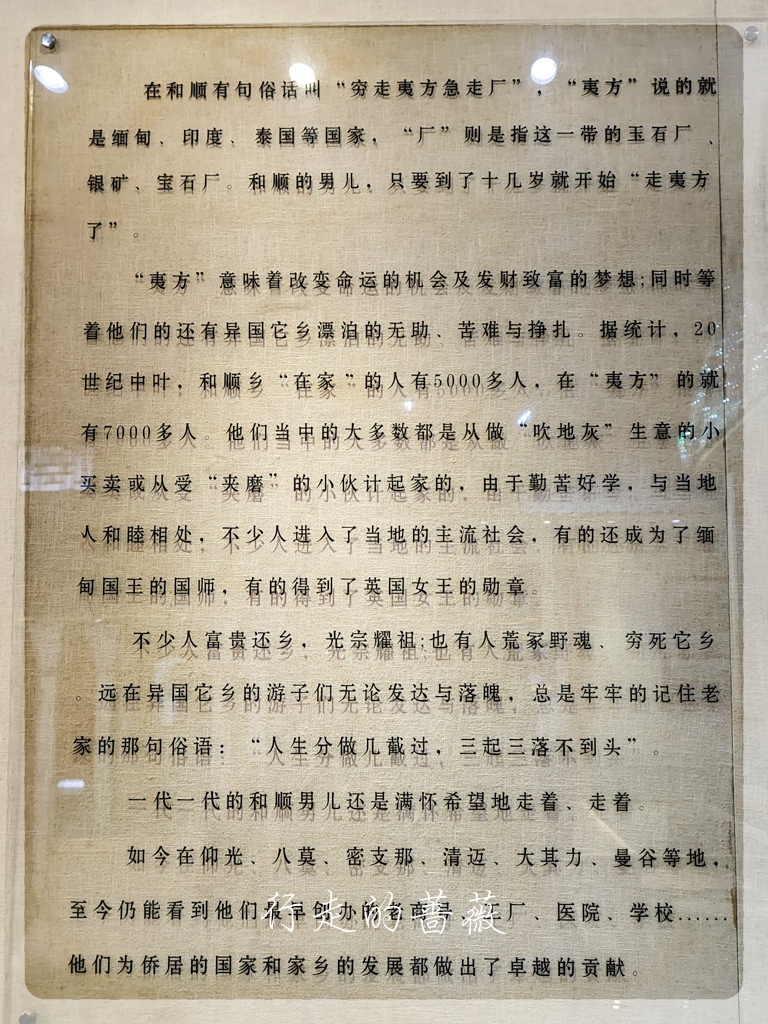 在和顺有句俗话叫“穷走夷方急走厂”，“夷方”说的就
是缅甸、印度、泰国等国家，“厂”则是指这一带的玉石厂、
银矿、宝石厂。和顺的男儿，只要到了十几岁就开始“走夷方
了”。
“夷方”意味着改变命运的机会及发财致富的梦想;同时等
着他们的还有异国它乡漂泊的无助、苦难与挣扎。据统计，20
世纪中叶，和顺乡“在家”的人有5000多人，在“夷方”的就
有7000多人。他们当中的大多数都是从做“吹地灰”生意的小
买卖或从受“夹磨”的小伙计起家的，由于勤苦好学，与当地
人和睦相处，不少人进入了当地的主流社会，有的还成为了缅
甸国王的国师，有的得到了英国女王的勋章。
不少人富贵还乡，光宗耀祖;也有人荒冢野魂、穷死它乡
。远在异国它乡的游子们无论发达与落魄，总是牢牢的记住老
家的那句俗语：“人生分做几截过，三起三落不到头”。
一代一代的和顺男儿还是满怀希望地走着、走着。
如今在仰光、八莫、密支那、清迈、大其力、曼谷等地，
至今仍能看到他们最早创办的老商号、工厂、医院、学校……
他们为侨居的国家和家乡的发展都做出了卓越的贡献。
行走的蔷薇